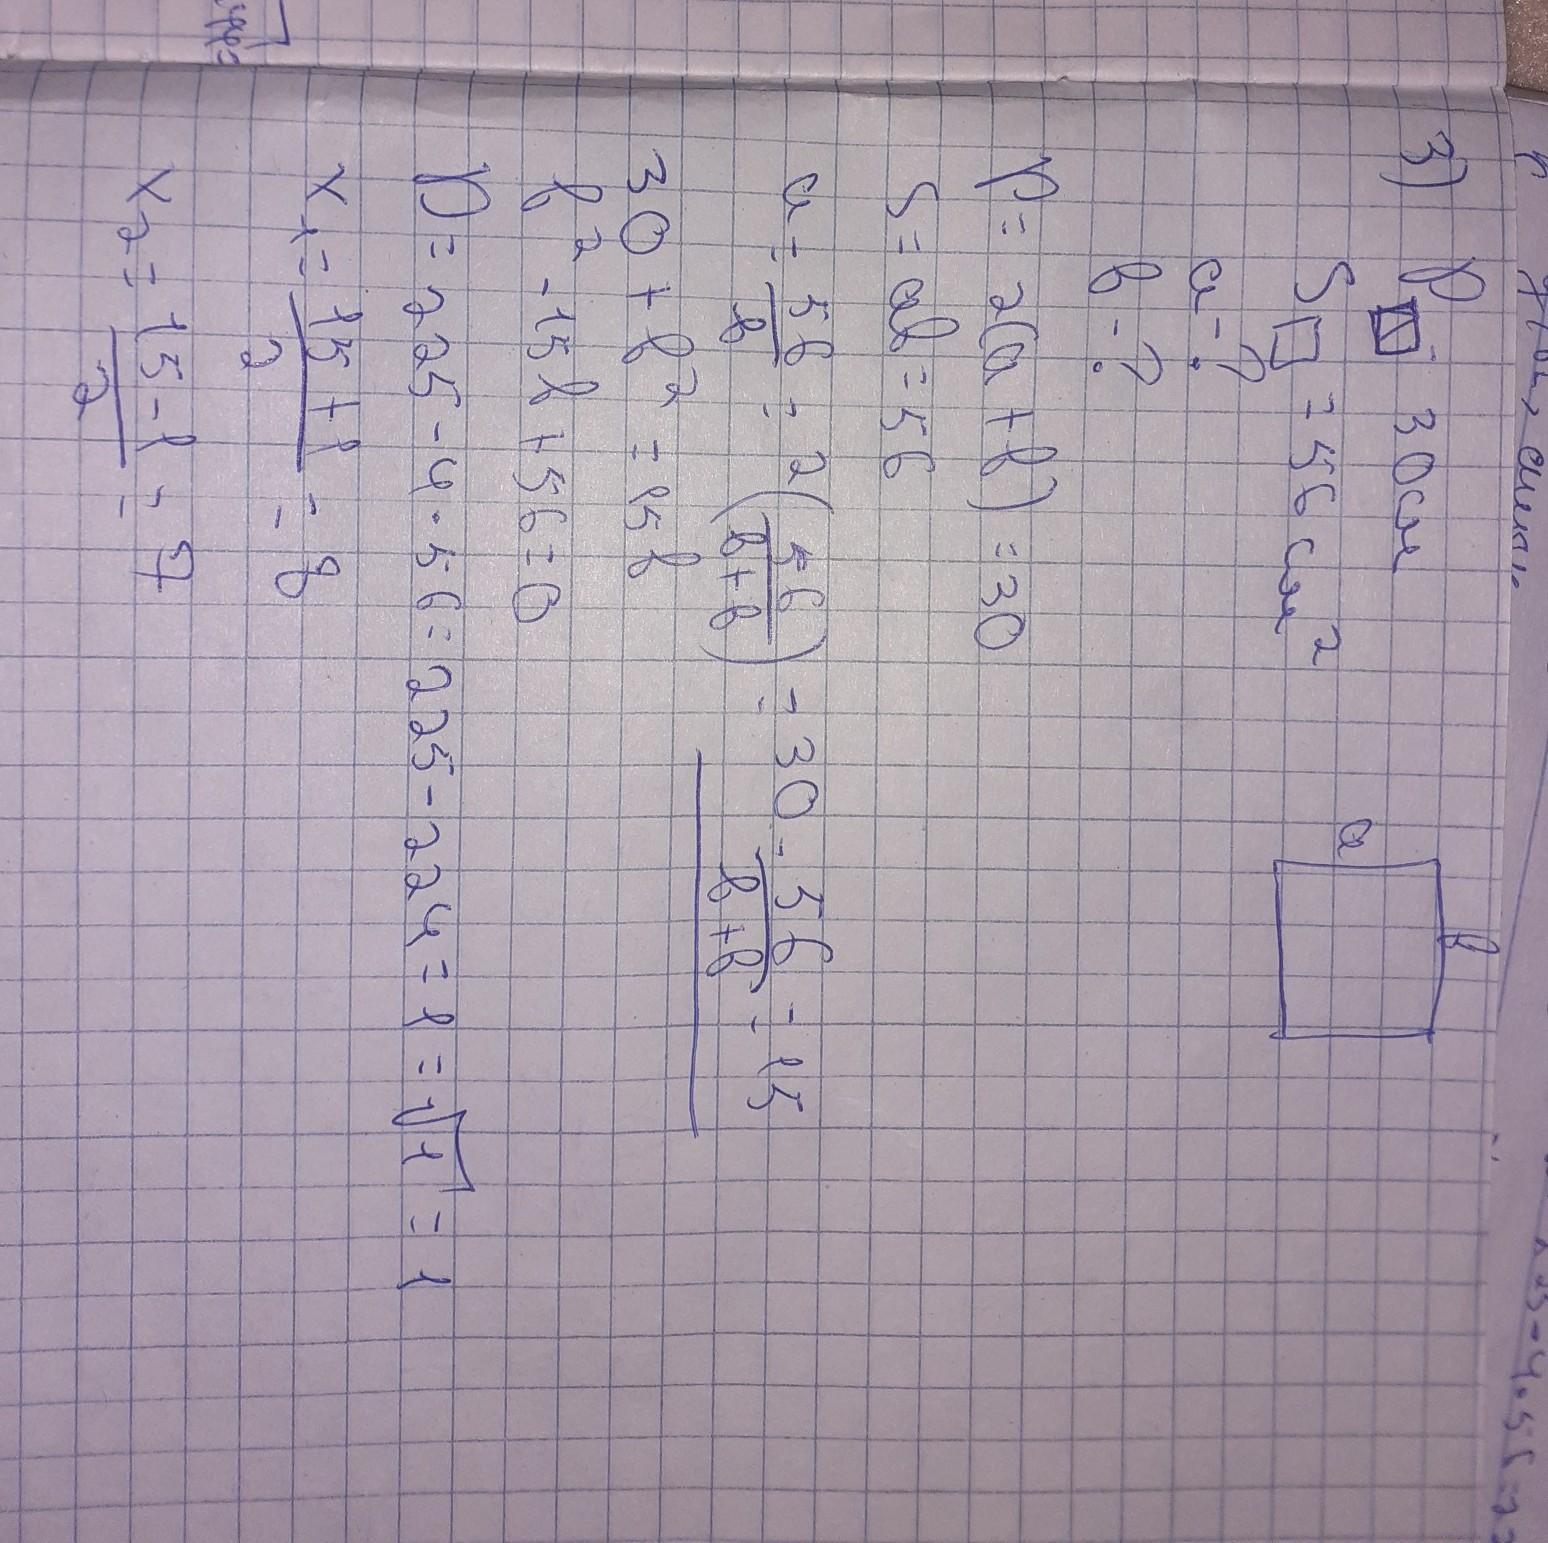 3) P▯ 30см
S▯ = 56 см²
a - ?
b - ?
a
b
P = 2(a + b) = 30
S = ab = 56
a = 56/b = 2(56/b+b) = 30 = 56/b+b = 15
30 + b² = 15b
b² - 15b + 56 = 0
D = 225 - 4 · 56 = 225 - 224 = 1 = √1 = 1
x₁ = 15 + 1/2 = 8
x₂ = 15 - 1/2 = 7